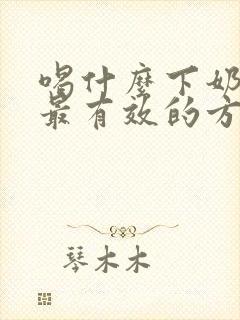 喝什麼下奶
最有效的方
琴木木